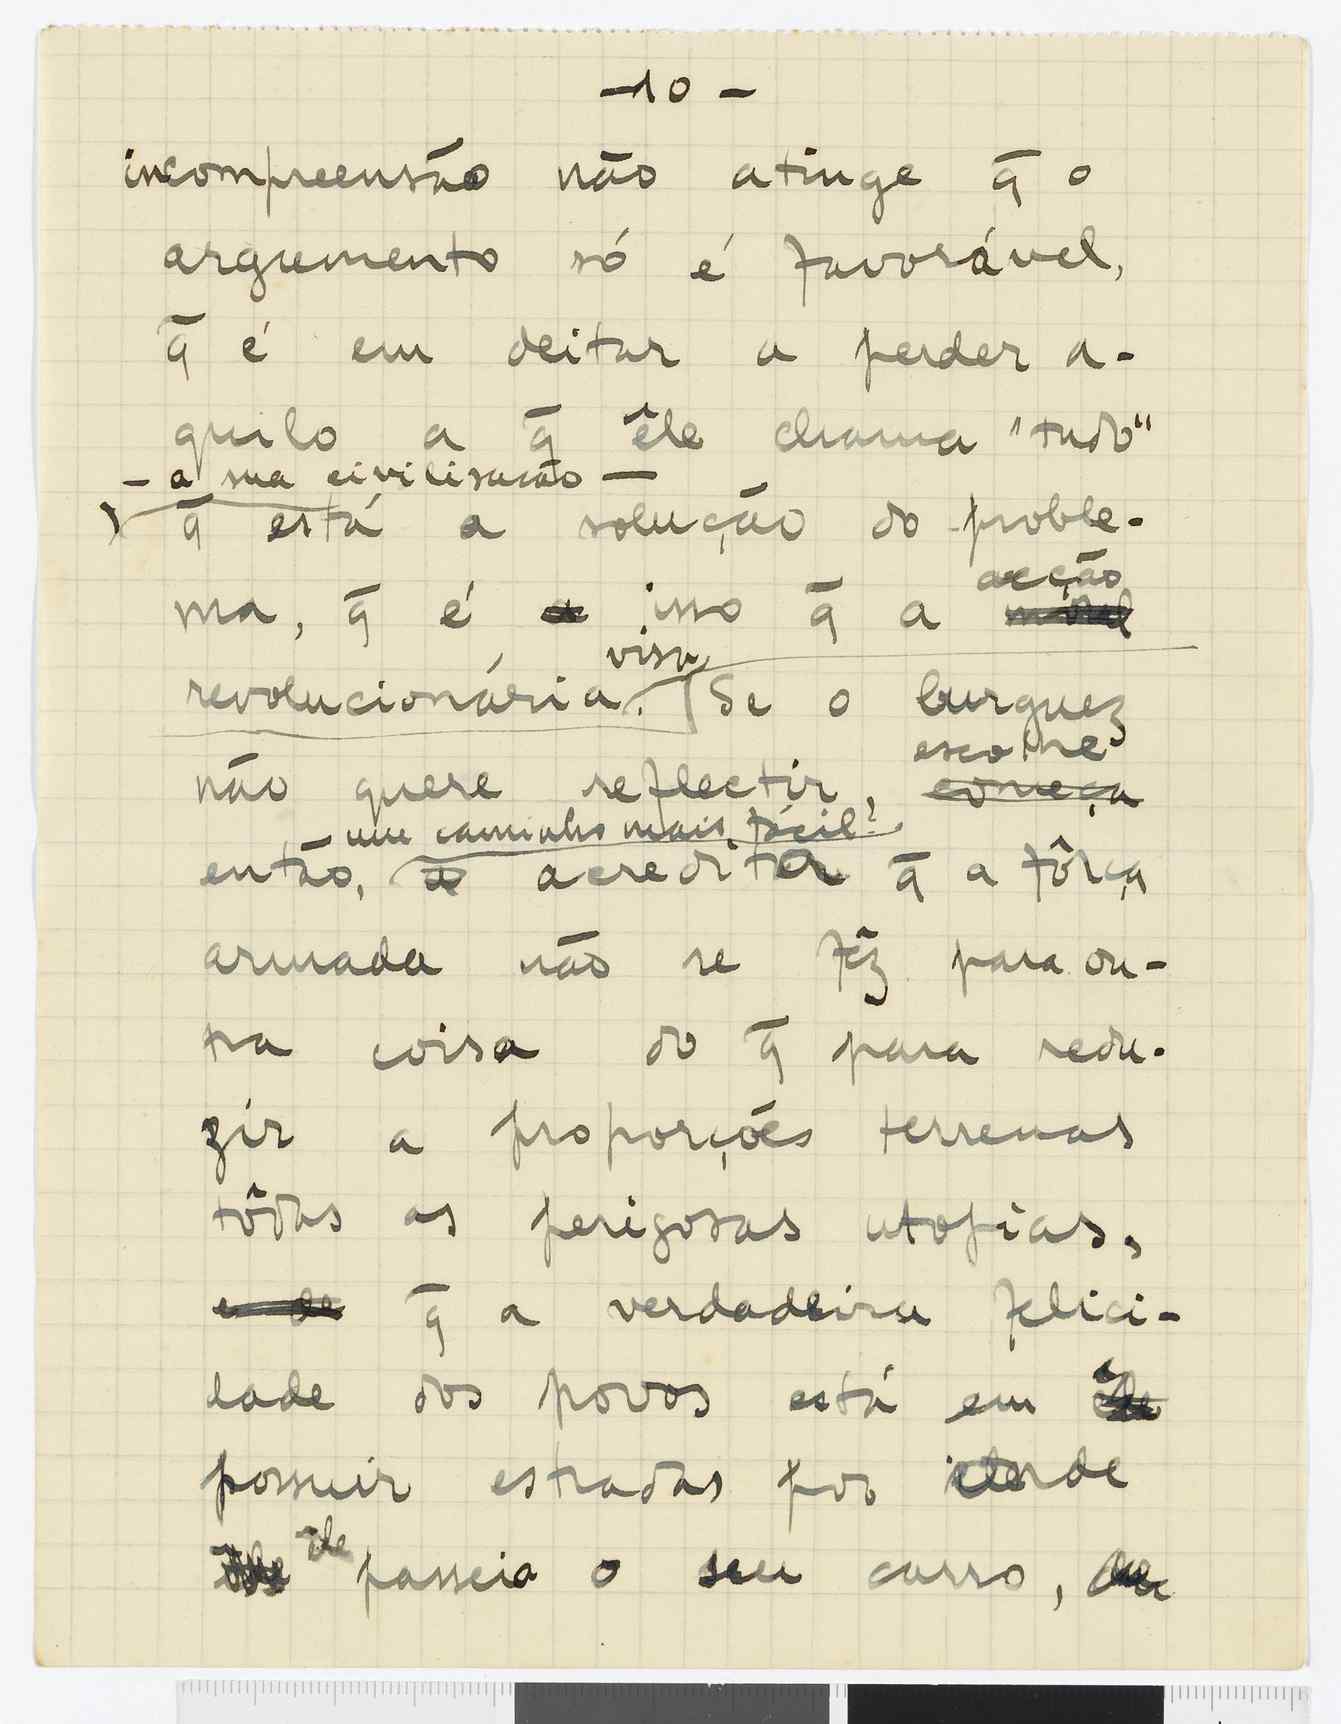 -10-
incompreensão não atinge q̄ o
argumento só é favorável,
q̄ é em deitar a perder a-
quilo a q̄ êle chama "tudo"
- a sua civilisação -
q̄ está a solução do proble-
acção
ma, q̄ é isso q̄ a moral
visa
revolucionária. Se o burguez
escolhe
não quere reflectir, começa
- um caminho mais fácil?
então, a acreditar q̄ a fôrça
armada não se fêz para ou-
tra coisa do q̄ para redu-
zir a proporções terrenas
tôdas as perigosas utopias,
e de q̄ a verdadeira felici-
dade dos povos está em êle
possuir estradas por onde
êle passeia o seu carro,